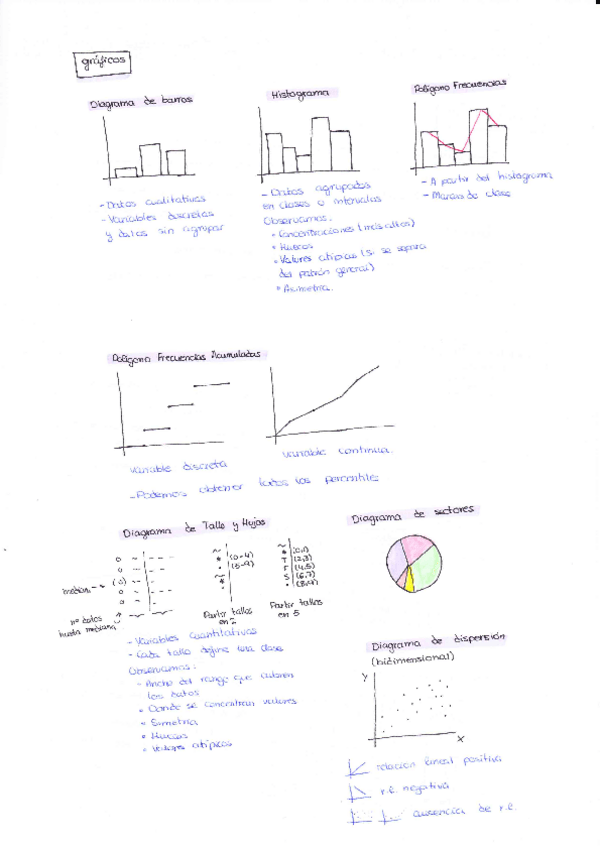 gráficos
Diagrama de barras
- Datos cualitativos
- Variables discretas
y datos sin agrupar
Histograma
- Datos agrupados
en clases o intervalos
Observamos:
• Concentraciones (más altos)
• Huecos
• Valores atípicos (si se separa
del patrón general)
• Asimetría.
Polígono Frecuencias
- A partir del histograma
- Marcas de clase
Polígono Frecuencias Acumuladas
variable discreta
variable continua.
- Podemos obtener todos los percentiles
Diagrama de Tallo y Hojas
mediana
nº datos
hasta mediana
(0-4)
(5-9)
Partir tallos
en 2
* (0,1)
T (2,3)
F (4,5)
S (6,7)
• (8,9)
Partir tallos
en 5
- Variables cuantitativas
- Cada tallo define una clase
Observamos:
- Ancho del rango que cubren
los datos
• Donde se concentran valores
• Simetría
• Huecos
• Valores atípicos
Diagrama de sectores
Diagrama de dispersión
(bidimensional)
Y
X
relación lineal positiva
r.l. negativa
ausencia de r.l.